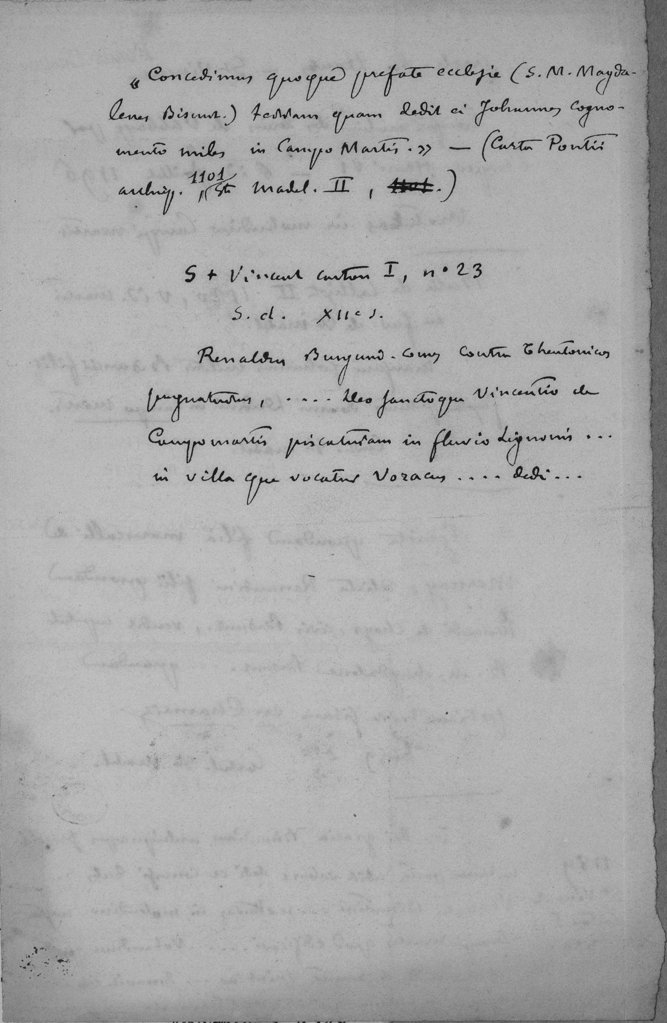 « Concedimus quoque prefate ecclesie (S. M. Magda-
lenes Bisunt.) terram quam dedit ei Johannes cogno-
mento miles in Campo Martis. » — (Carta Pontii
archiep. 1101, Ste Madel. II, 1101.)
St Vincent carton I, n° 23
S. d. XIIe s.
Renaldus Burgund. Comes contra Theutonicos
pugnaturus, ..... Deo sanctoque Vincentio de
Campomartis piscaturam in fluvio Lignonis ...
in villa que vocatur Voracus .... dedi ...